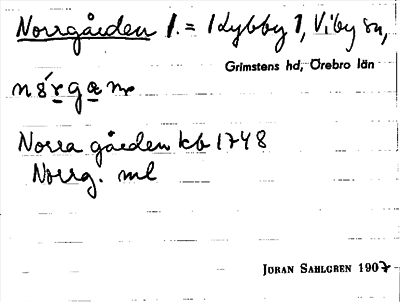 Norrgården 1. = 1 Kybby 1, Viby sn,
Grimstens hd, Örebro län
Norra gården kb 1748
Norrg. ml
JÖRAN SAHLGREN 1907